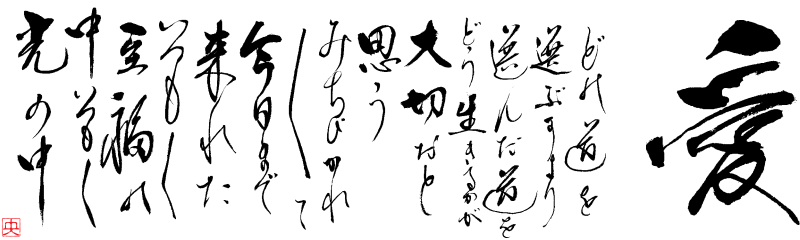 愛
どの道を
選ぶより
選んだ道を
どう生きるかが
大切だと
思う
みちびかれ
て
今日まで
来れた
至福の
中
光の中
央